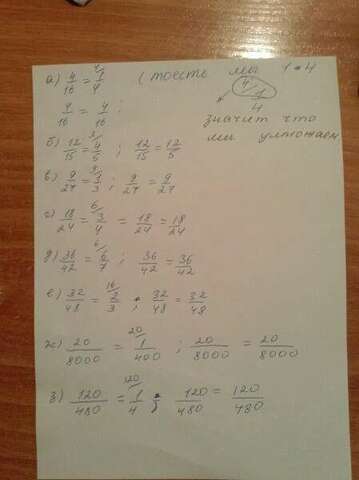 а) 4/16 = 4/ 1/4 ( тоесть мы 1 * 4
4/16 = 4/16 ; 4/ 1/4
значит что
мы умножаем
б) 12/15 = 3/ 4/5 ; 12/15 = 12/15
в) 9/27 = 9/ 1/3 ; 9/27 = 9/27
г) 18/24 = 6/ 3/4 = 18/24 = 18/24
д) 36/42 = 6/ 6/7 ; 36/42 = 36/42
е) 32/48 = 16/ 2/3 ; 32/48 = 32/48
ж) 20/8000 = 20/ 1/400 ; 20/8000 = 20/8000
з) 120/480 = 120/ 1/4 ; 120/480 = 120/480